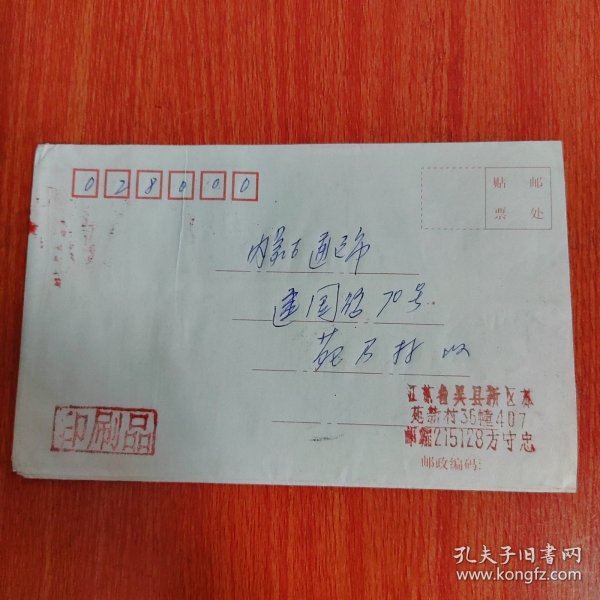 028000
贴 邮
票 处
内蒙古通辽市
建国路70号
苑万材 收
江苏省吴县新区苏
苑新村36幢407
邮编215128方守忠
印刷品
邮政编码:
孔夫子旧书网
www.kongfz.com